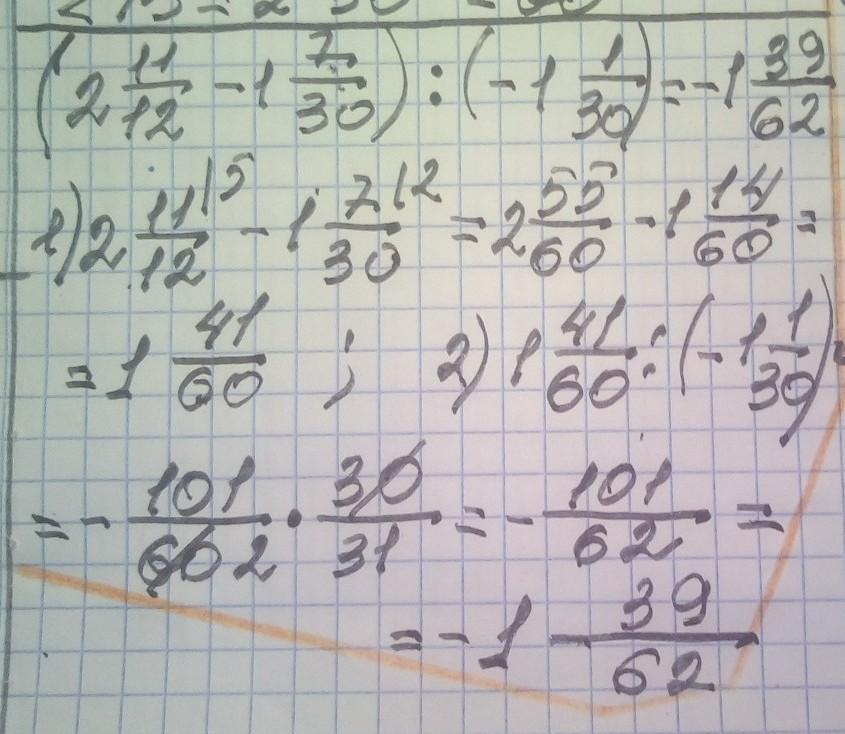 (2 11/12 - 1 7/30) : (-1 1/30) = -1 39/62
1) 2 11/12 |5 - 1 7/30 |2 = 2 55/60 - 1 14/60 =
= 1 41/60 ; 2) 1 41/60 : (-1 1/30) =
= - 101/60 2 · 30/31 = - 101/62 =
= -1 39/62